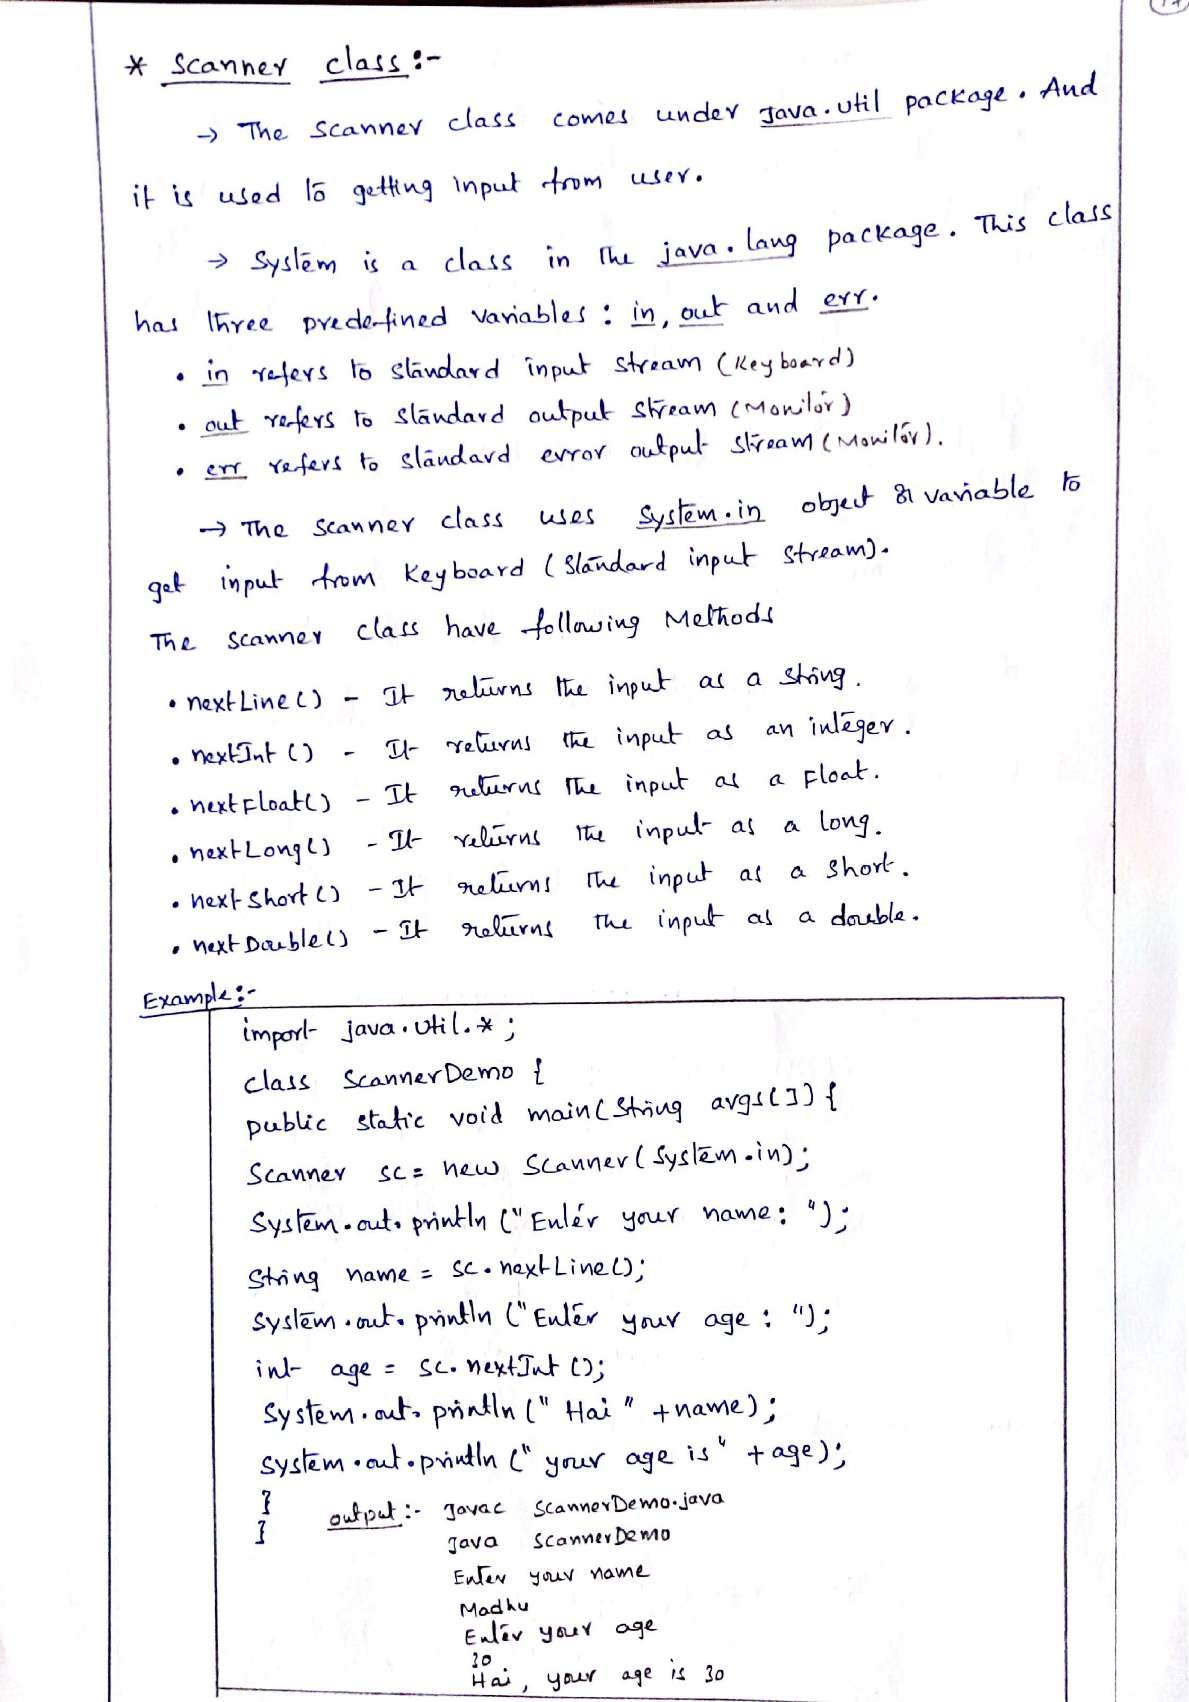 * Scanner class :-
→ The Scanner class comes under Java.util package. And
it is used to getting input from user.
→ System is a class in the java.lang package. This class
has three predefined variables : in, out and err.
• in refers to standard input stream (Keyboard)
• out refers to standard output stream (Monitor)
• err refers to standard error output stream (Monitor).
→ The Scanner class uses System.in object or variable to
get input from Keyboard (Standard input stream).
The scanner class have following Methods
• nextLine() - It returns the input as a string.
• nextInt () - It returns the input as an integer.
• nextFloat() - It returns the input as a Float.
• nextLong() - It returns the input as a long.
• nextShort() - It returns the input as a short.
• nextDouble() - It returns the input as a double.
Example :-
import java.util.*;
class ScannerDemo {
public static void main(String args[]) {
Scanner sc = new Scanner(System.in);
System.out.println ("Enter your name: ");
String name = sc.nextLine();
System.out.println ("Enter your age : ");
int age = sc.nextInt ();
System.out.println (" Hai " +name);
System.out.println (" your age is " +age);
}
}
output :- Javac ScannerDemo.java
Java ScannerDemo
Enter your name
Madhu
Enter your age
30
Hai, your age is 30